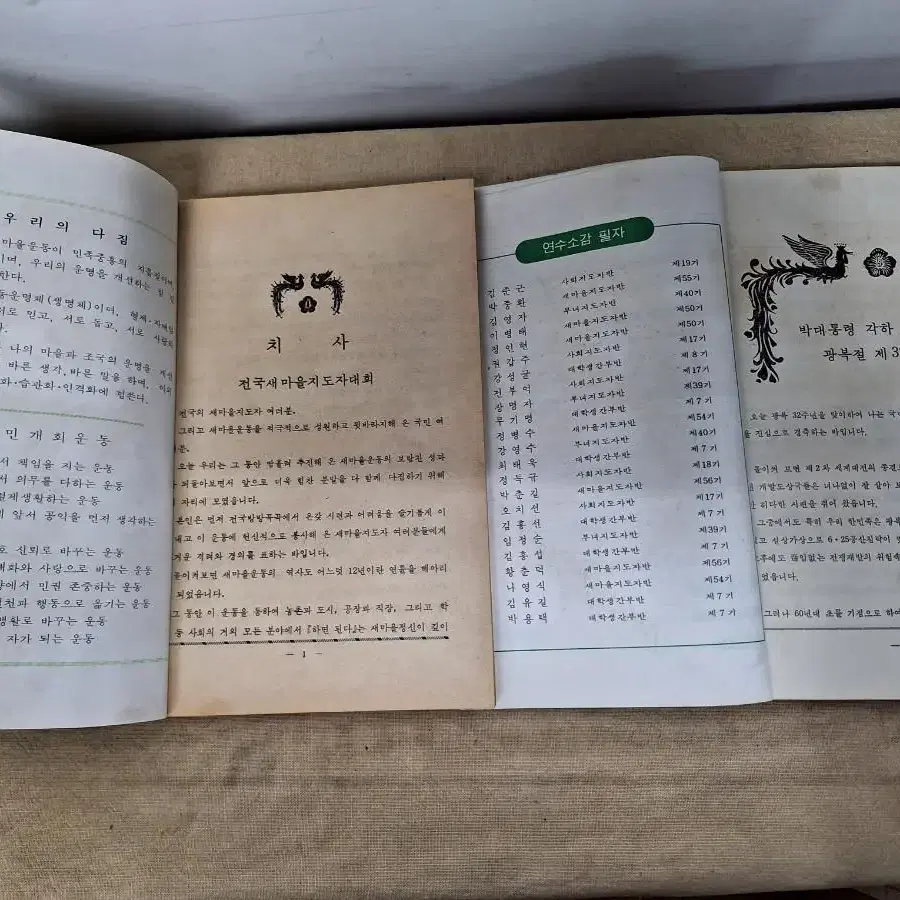 우리의 다짐
마을운동이 민족중흥의 지름길이며,
이며, 우리의 운명을 개선하는 길 인
한다.
동운명체(생명체)이며, 형제·자매임
로 믿고, 서로 돕고, 서로 사랑
다.
나의 마을과 조국의 운명을 개선
바른 생각, 바른 말을 하며, 이의
화·습관화·인격화에 힘쓴다.
민개회운동
서 책임을 지는 운동
서 의무를 다하는 운동
절제생활하는 운동
에 앞서 공익을 먼저 생각하는
호 신뢰로 바꾸는 운동
대화와 사랑으로 바꾸는 운동
에서 민권 존중하는 운동
실천과 행동으로 옮기는 운동
생활로 바꾸는 운동
자가 되는 운동
치 사
전국새마을지도자대회
전국의 새마을지도자 여러분.
그리고 새마을운동을 적극적으로 성원하고 뒷바라지해 온 국민 여
분.
오늘 우리는 그 동안 땀흘려 추진해 온 새마을운동의 보람찬 성과
되돌아보면서 앞으로 더욱 힘찬 분발을 다 함께 다짐하기 위해
자리에 모였습니다.
본인은 먼저 전국방방곡곡에서 온갖 시련과 어려움을 슬기롭게 이
내고 이 운동에 헌신적으로 봉사해 온 새마을지도자 여러분들에게
거운 격려와 경의를 표하는 바입니다.
돌이켜보면 새마을운동의 역사도 어느덧 12년이란 연륜을 헤아리
되었습니다.
그 동안 이 운동을 통하여 농촌과 도시, 공장과 직장, 그리고 학
등 사회의 거의 모든 분야에서 『하면 된다』는 새마을정신이 깊이
— 1 —
연수소감 필자
김준근 사회지도자반 제19기
박중환 새마을지도자반 제55기
김영자 부녀지도자반 제40기
이병태 새마을지도자반 제50기
정인현 새마을지도자반 제50기
권갑수 사회지도자반 제17기
강성균 대학생간부반 제8기
전부억 사회지도자반 제17기
상명자 부녀지도자반 제39기
루기명 대학생간부반 제7기
정병수 새마을지도자반 제54기
강영수 부녀지도자반 제40기
최태욱 대학생간부반 제7기
정득규 사회지도자반 제18기
박춘길 새마을지도자반 제56기
호치선 사회지도자반 제17기
김홍선 대학생간부반 제7기
임정순 부녀지도자반 제39기
김흥섭 대학생간부반 제7기
황춘덕 새마을지도자반 제56기
나영식 새마을지도자반 제54기
김유길 대학생간부반 제7기
박용택 대학생간부반 제7기
박대통령 각하
광복절 제3
오늘 광복 32주년을 맞이하여 나는 국내
를 진심으로 경축하는 바입니다.
돌이켜 보면 제2차 세계대전의 종결로
개발도상국들은 너나없이 쌀 살아 보
한 허다한 시련을 겪어 왔습니다.
그중에서도 특히 우리 한민족은 광복
고 설상가상으로 6·25공산침략이
후에도 끊임없는 전쟁재발의 위험속
었습니다.
그러나 60년대 초를 기점으로 하여